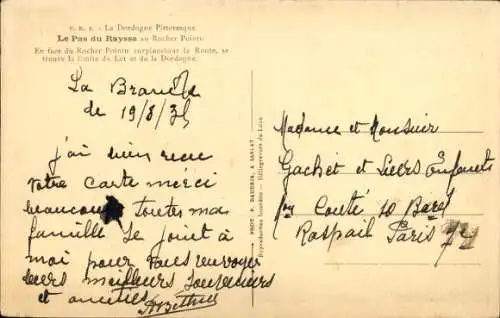 O. R. S. - La Dordogne Pittoresque
Le Pas du Raysse au Rocher Pointu
En face du Rocher Pointu surplombant la Route, se
trouve la limite du Lot et de la Dordogne.
La
de 19/8/35
j'ai bien reçu
votre carte merci
beaucoup toutes ma
famille se joint à
moi pour vous envoyer
leurs meilleurs souvenirs
et amitiés
PHOT. P. DAUDRIX, A SARLAT
Reproduction interdite - Héliogravure de Luxe
Madame et Monsieur
Gachet et Leurs Enfants
10
Raspail Paris